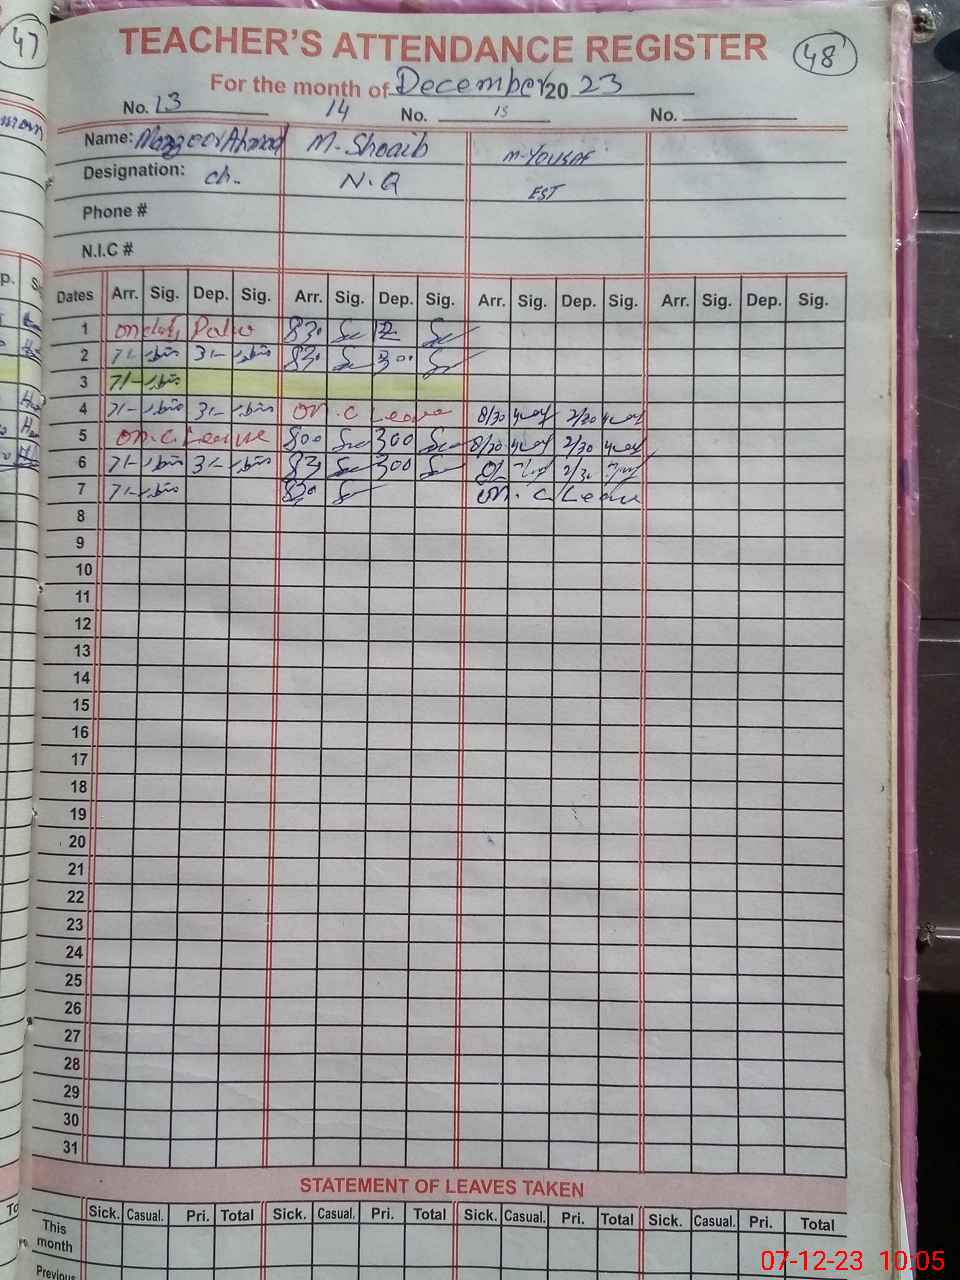 47
TEACHER'S ATTENDANCE REGISTER 48
For the month of December 20 23
No. 13 14 No. 15 No.
Name: Manzoor Ahmad M. Shoaib M-YOUSAF
Designation: ch. N.Q EST
Phone #
N.I.C #
Dates Arr. Sig. Dep. Sig. Arr. Sig. Dep. Sig. Arr. Sig. Dep. Sig. Arr. Sig. Dep. Sig.
1 on duty 830 12
2 7/- 3/- 830 300
3 7/-
4 7/- 3/- on. C Leave 8/30 2/30
5 on. C. Leave 800 300 8/30 2/30
6 7/- 3/- 830 300 8/- 2/30
7 7/- 830 on. C Leave
8
9
10
11
12
13
14
15
16
17
18
19
20
21
22
23
24
25
26
27
28
29
30
31
STATEMENT OF LEAVES TAKEN
Sick. Casual. Pri. Total Sick. Casual. Pri. Total Sick. Casual. Pri. Total Sick. Casual. Pri. Total
This month
Previous
07-12-23 10:05